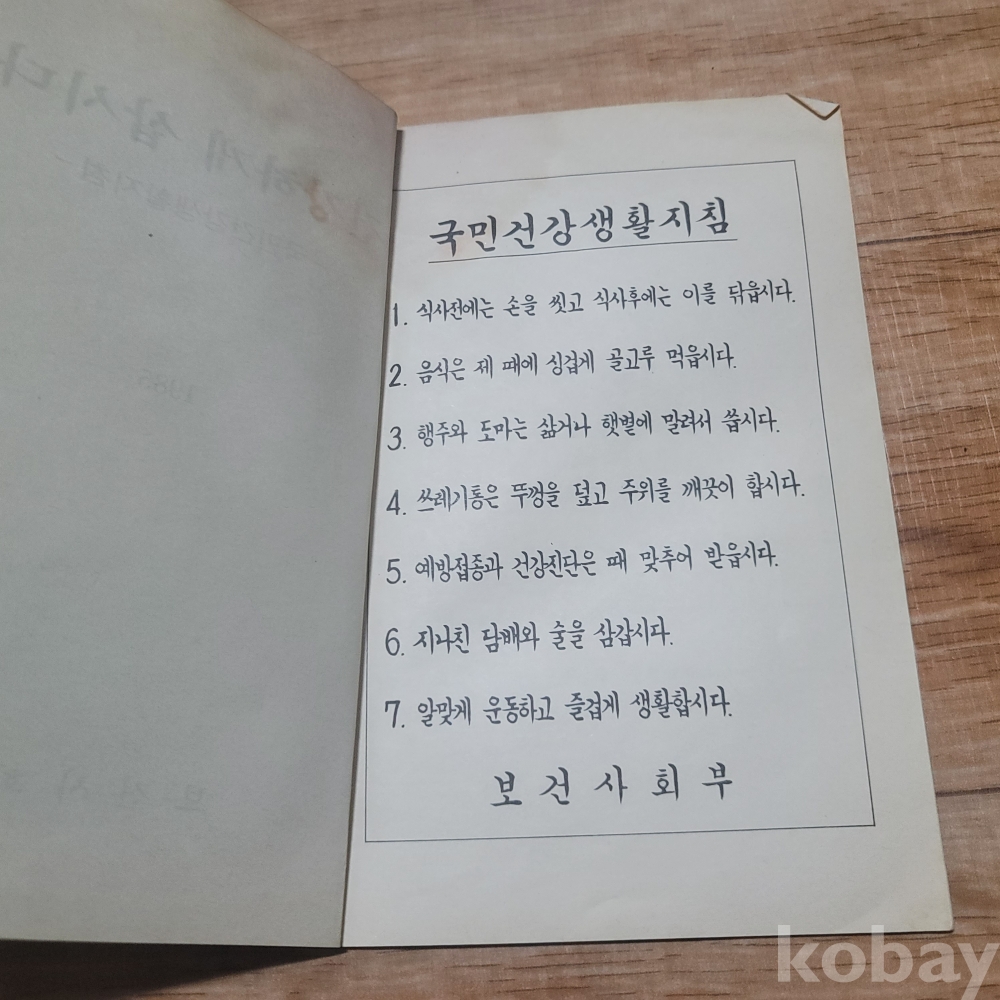 국민건강생활지침
1. 식사전에는 손을 씻고 식사후에는 이를 닦읍시다.
2. 음식은 제 때에 싱겁게 골고루 먹읍시다.
3. 행주와 도마는 삶거나 햇볕에 말려서 씁시다.
4. 쓰레기통은 뚜껑을 덮고 주위를 깨끗이 합시다.
5. 예방접종과 건강진단은 때 맞추어 받읍시다.
6. 지나친 담배와 술을 삼갑시다.
7. 알맞게 운동하고 즐겁게 생활합시다.
보건사회부
kobay